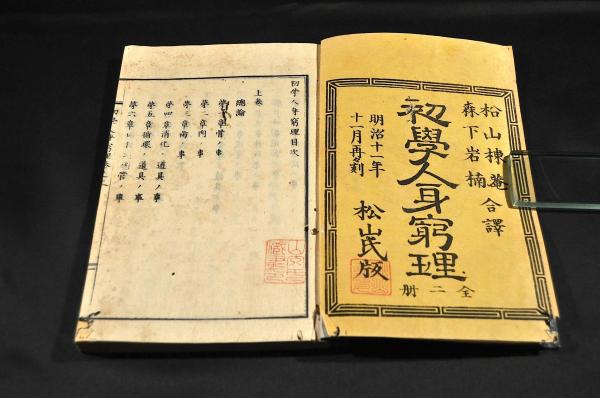 松山棟菴
森下岩楠
合譯
初學人身窮理
全二冊
明治十一年
十一月再刻
松山氏版
初学人身窮理目次
上巻
總論
第一章骨ノ事
第二章肉ノ事
第三章歯ノ事
第四章消化ノ道具ノ事
第五章循環ノ道具ノ事
第六章 管ノ事